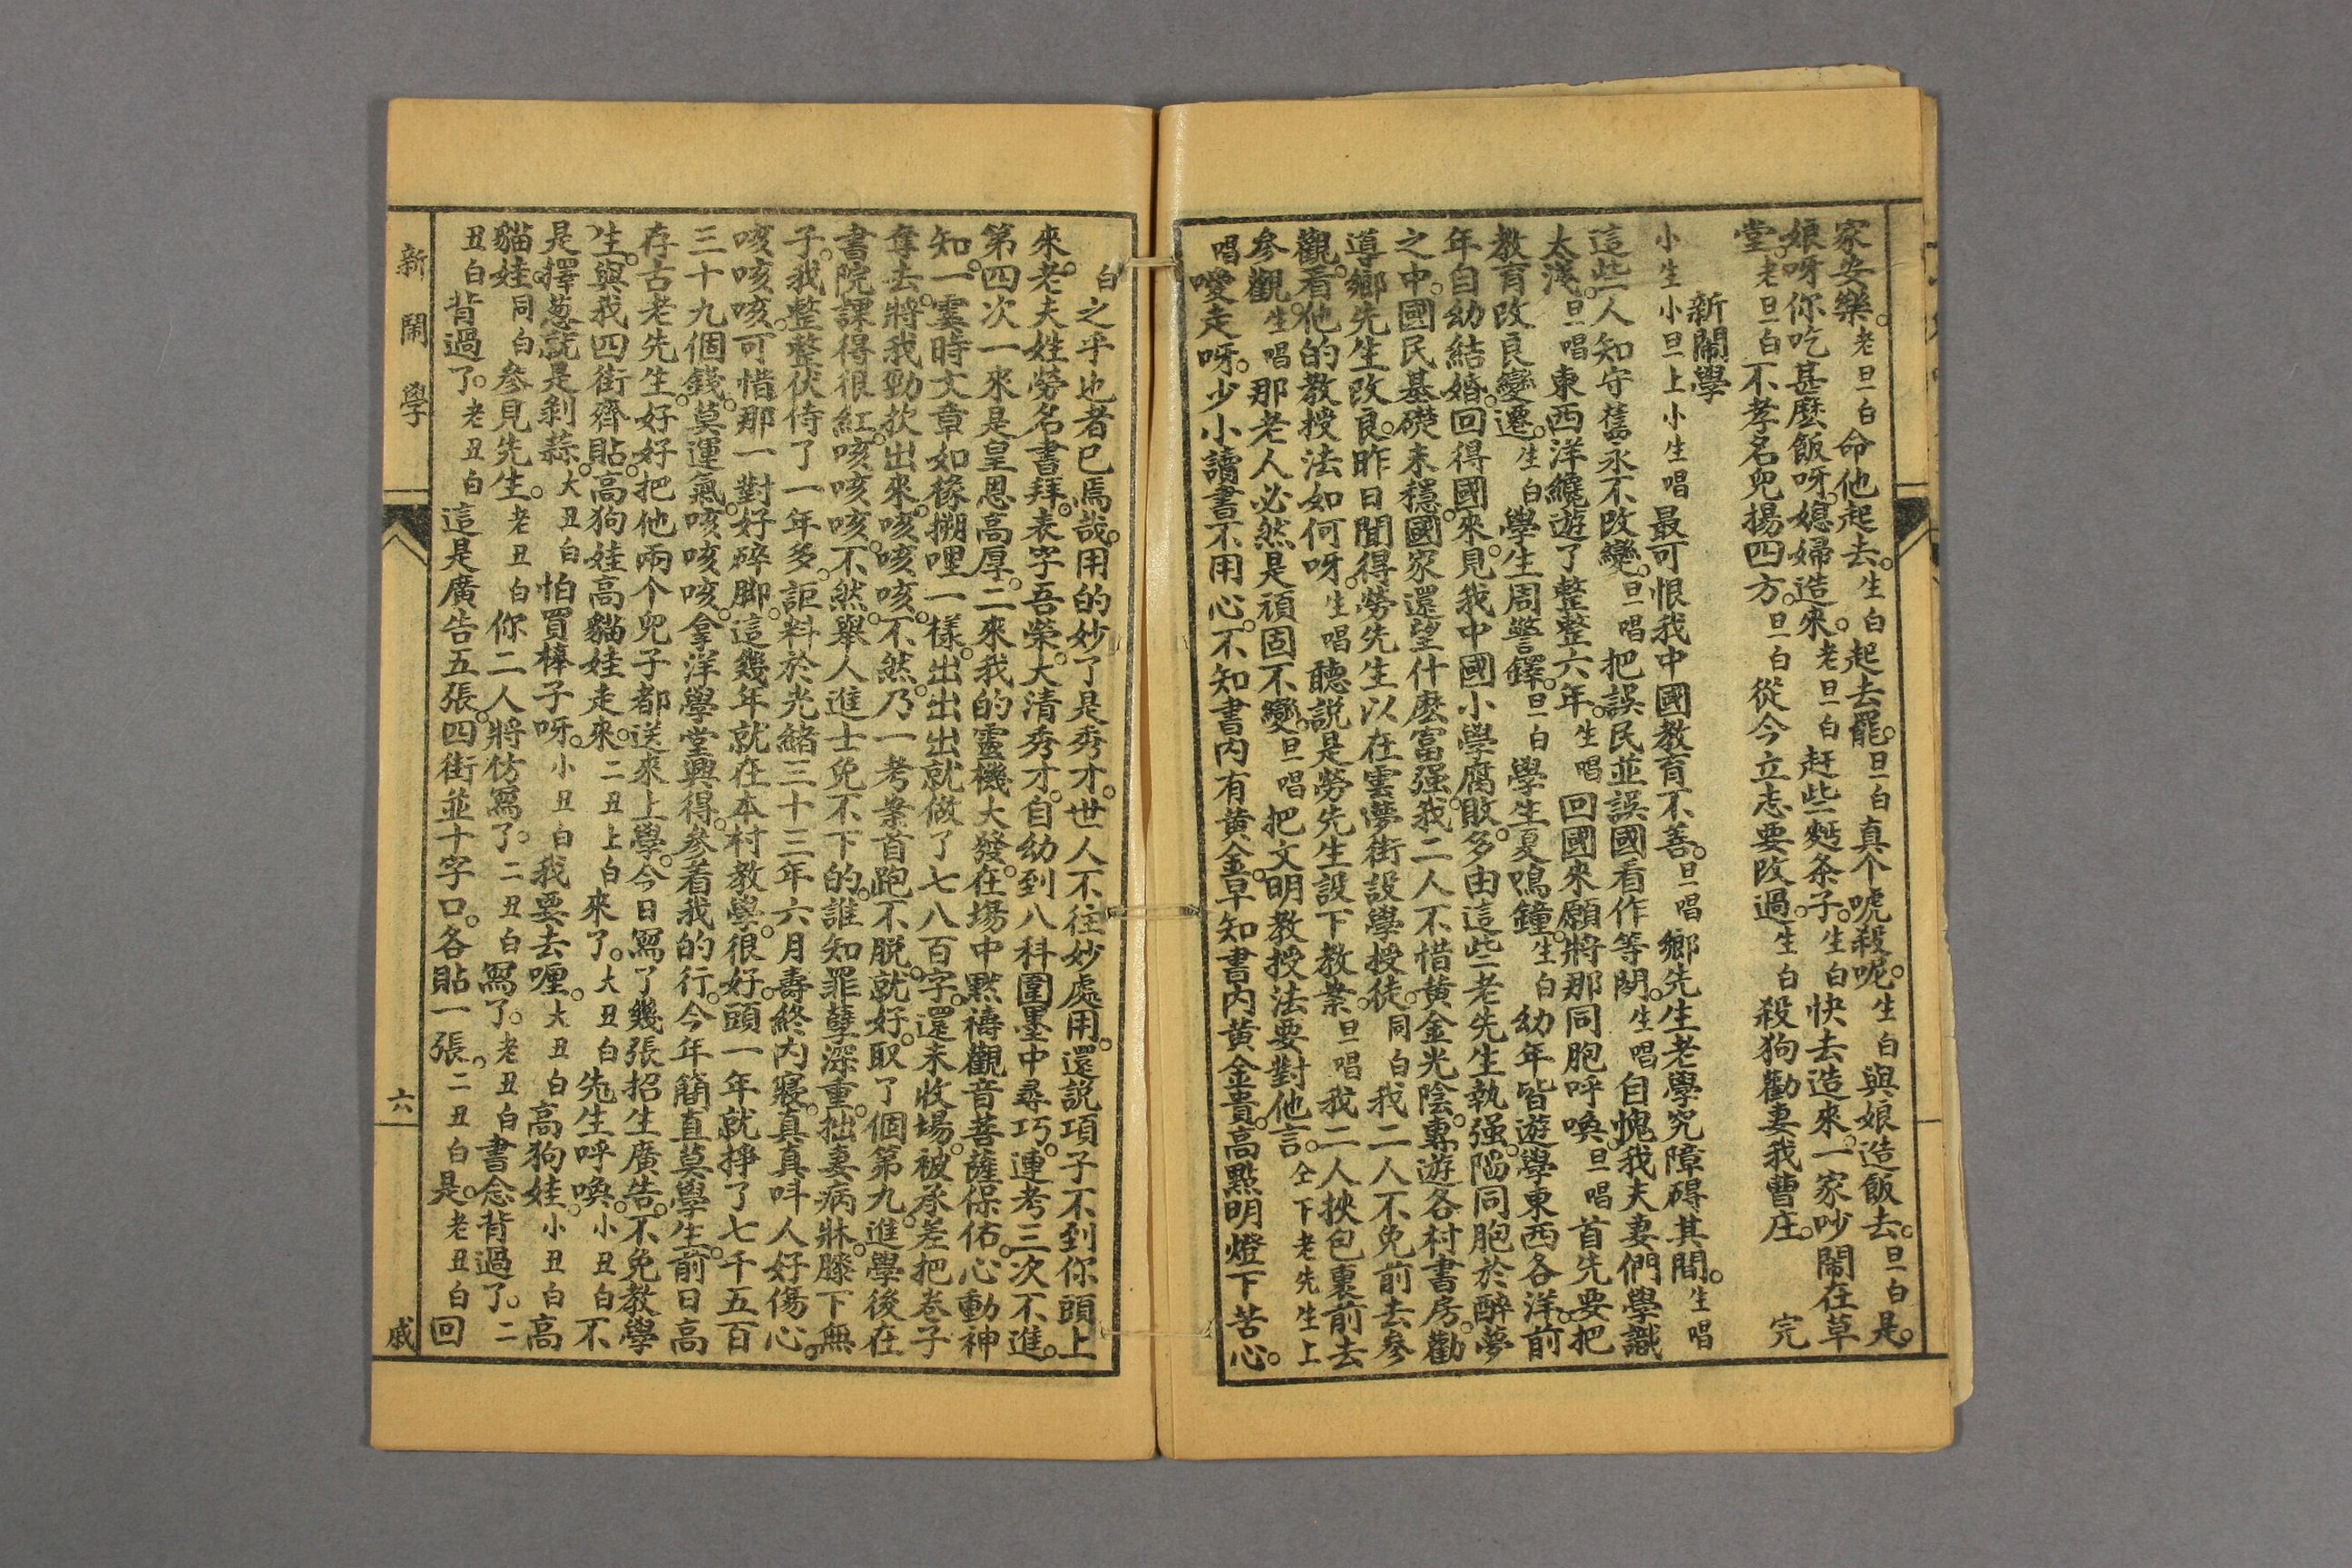 家安樂。老旦白命他起去。生白起去罷。旦白真个唬殺呢。生白與娘造飯去。旦白是。
娘呀你吃甚麼飯呀。媳婦造來。老旦白赶些麪条子。生白快去造來。一家吵鬧在草
堂。老旦白不孝名兒揚四方。旦白從今立志要改過。生白殺狗勸妻我曹庄。完
新鬧學
小生小旦上小生唱最可恨我中國教育不善。旦唱鄉先生老學究障碍其間。生唱
這些人知守舊永不改變。旦唱把誤民並誤國看作等閒。生唱自愧我夫妻們學識
太淺。旦唱東西洋繞遊了整整六年。生唱回國來願將那同胞呼喚。旦唱首先要把
教育改良變遷。生白學生周警鐸。旦白學生夏鳴鐘。生白幼年皆遊學東西各洋。前
年自幼結婚。回得國來。見我中國小學腐敗。多由這些老先生執强。陷同胞於醉夢
之中。國民基礎未穩。國家還望什麽富强。我二人不惜黄金光陰。專遊各村書房。勸
導鄉先生改良。昨日聞得勞先生以在雲夢街設學授徒。同白我二人不免前去參
觀。看他的教授法如何呀。生唱聽説是勞先生設下教業。旦唱我二人挾包裹前去
參觀。生唱那老人必然是頑固不變。旦唱把文明教授法要對他言。仝下老先生上
唱嗳走呀。少小讀書不用心。不知書内有黄金。早知書内黄金貴。高點明燈下苦心。
白之乎也者已焉哉。用的妙了是秀才。世人不往妙處用。還説項子不到你頭上
來。老夫姓勞名書拜。表字吾榮。大清秀才。自幼到八科圍墨中尋巧。連考三次不進。
第四次一來是皇恩高厚。二來我的靈機大發。在塲中默禱觀音菩薩保佑。心動神
知。一霎時文章如稼搠哩一樣。出出出就做了七八百字。還未收塲。被承差把卷子
奪去。將我勁欻出來。咳咳咳。不然。乃一考案首跑不脱。就好。取了個第九。進學後在
書院課得很紅。咳咳咳。不然。舉人進士免不下的。誰知罪孽深重。拙妻病牀。膝下無
子。我整整伏侍了一年多。詎料於光緒三十三年六月壽終内寢。真真呌人好傷心。
咳咳咳。可惜那一對好碎脚。這幾年就在本村教學。很好。頭一年就掙了七千五百
三十九個錢。莫運氣。咳咳咳。拿洋學堂興得。參着我的行。今年簡直莫學生。前日高
存古老先生。好好把他兩个兒子都送來上學。今日寫了幾張招生廣告。不免教學
生。與我四街齊貼。高狗娃高貓娃走來。二丑上白來了。大丑白先生呼喚。小丑白不
是擇葱就是剥蒜。大丑白怕買棒子呀。小丑白我要去喱。大丑白高狗娃。小丑白高
貓娃。同白參見先生。老丑白你二人將仿寫了。二丑白寫了。老丑白書念背過了。二
丑白背過了。老丑白這是廣告五張。四街並十字口。各貼一張。二丑白是。老丑白回
新鬧學
六
戚